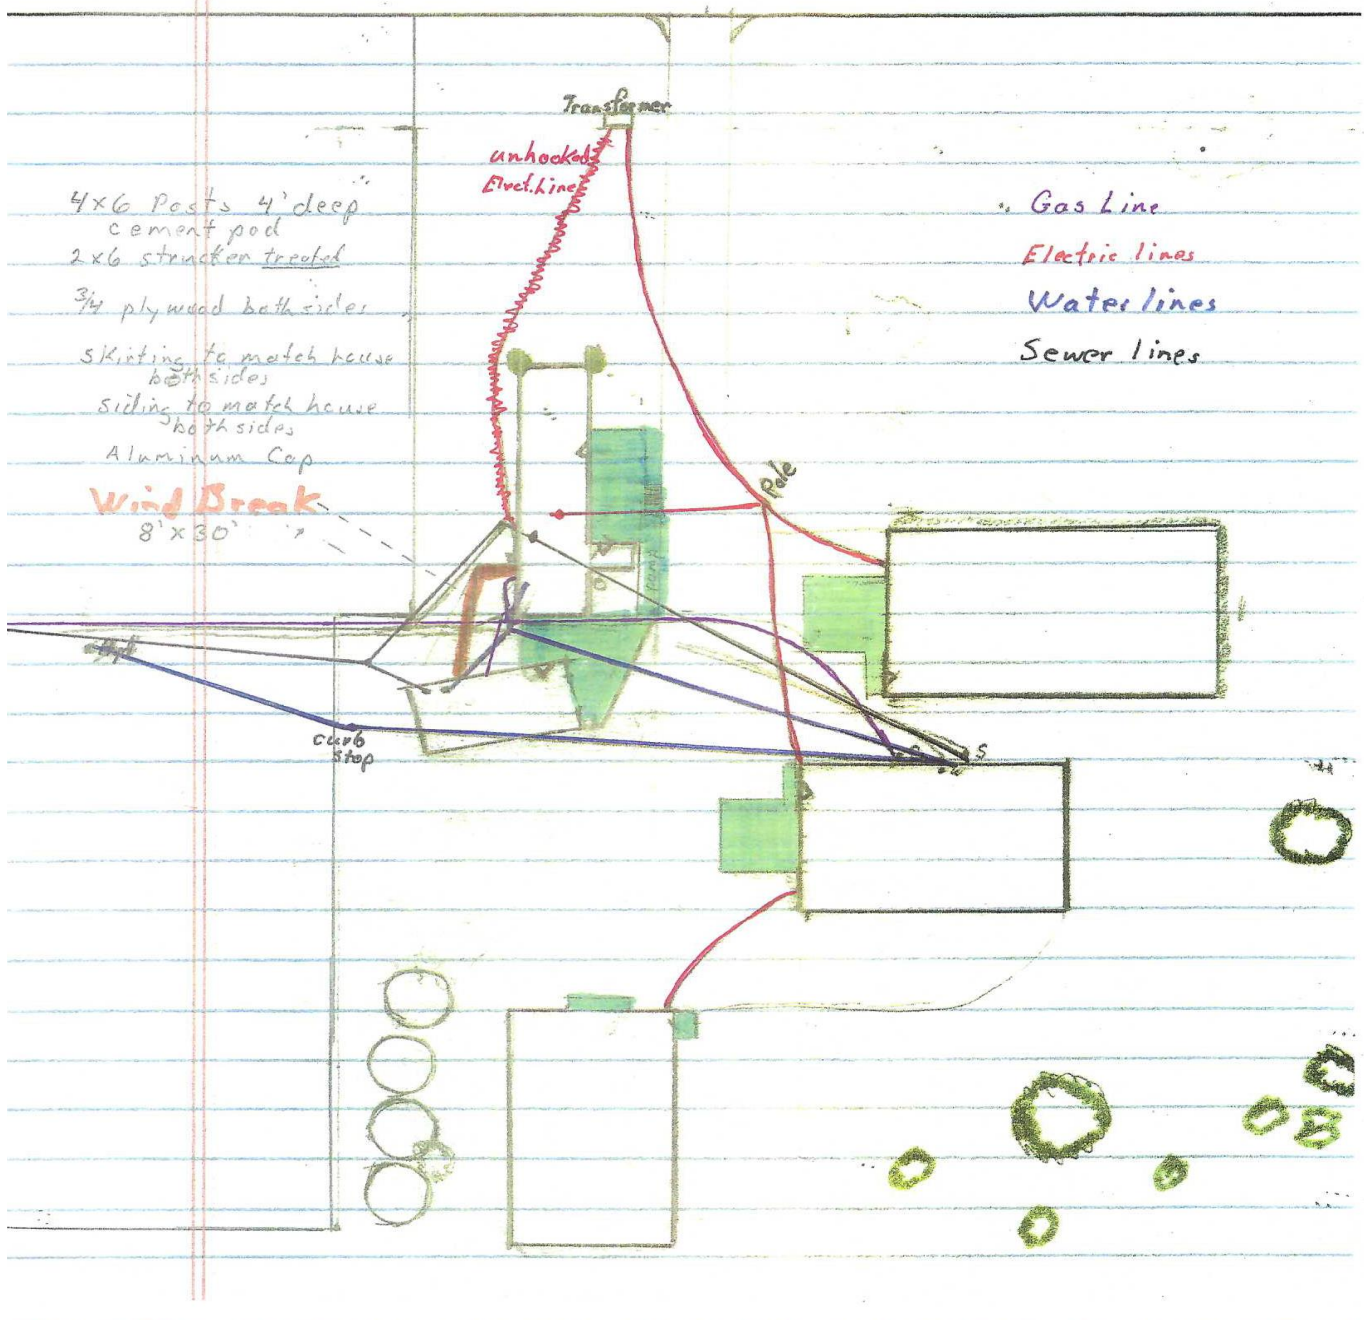 Transformer
unhooked
Elect. Line
4x6 Posts 4' deep
cement pod
2x6 strucker treated
3/4 plywood both sides
Skirting to match house
both sides
Siding to match house
both sides
Aluminum Cap
Wind Break
8' x 30'
Gas Line
Electric lines
Water lines
Sewer lines
Pole
ramp
curb
stop
G
W
S